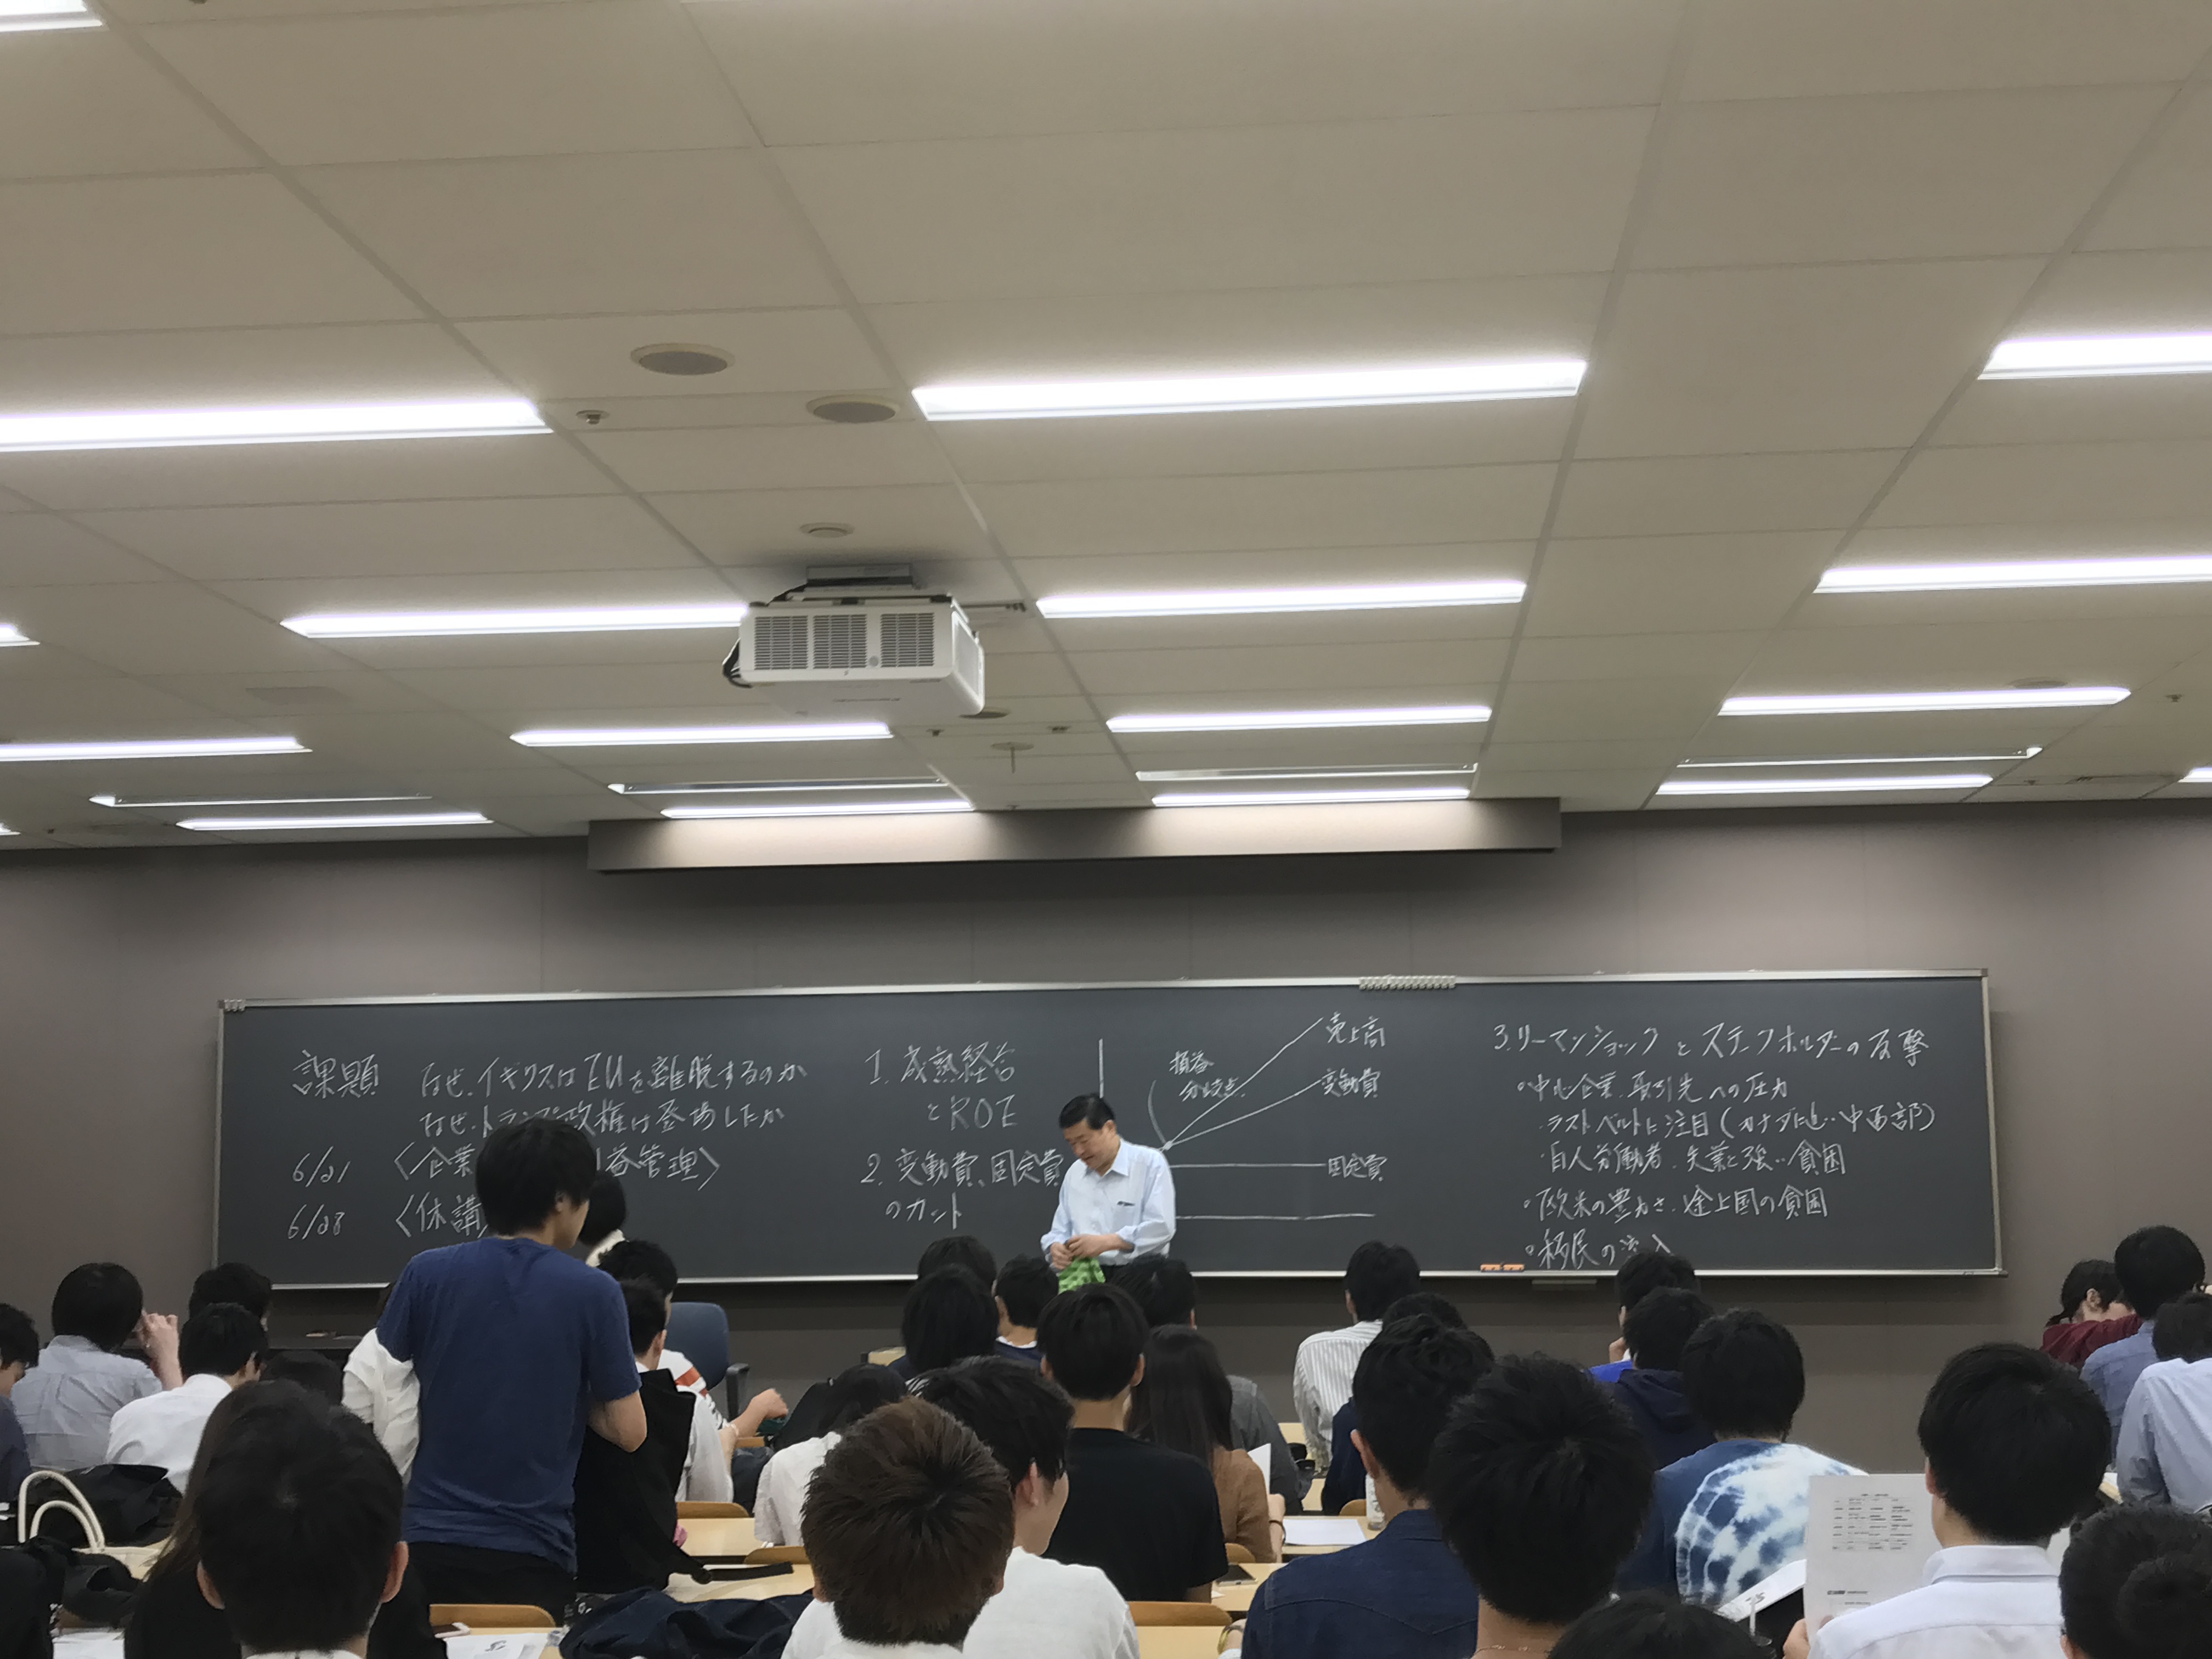 課題 なぜ、イギリスはEUを離脱するのか
なぜ、トランプ政権は登場したか
6/21 〈企業 益管理〉
6/28 〈休講
1. 成熟経営
とROE
2. 変動費、固定費
のカット
損益
分岐点
売上高
変動費
固定費
3.リーマンショックとステークホルダーの反撃
・中心企業、取引先への圧力
・ラストベルトに注目(カナダに近い中西部)
・白人労働者、失業と強い貧困
・欧米の豊かさ、途上国の貧困
・移民の流入